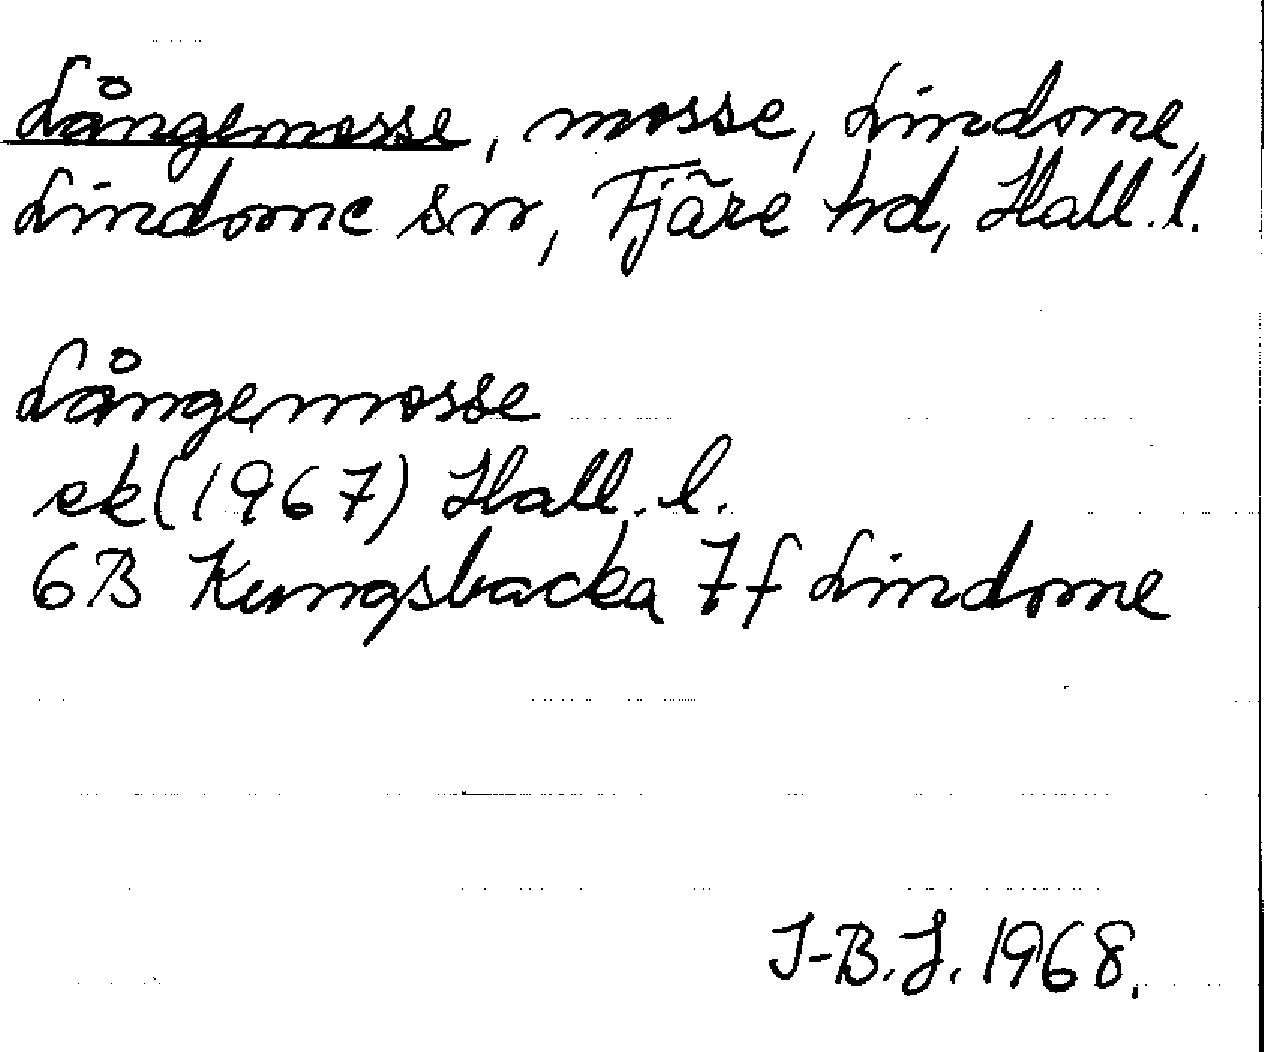 Långemosse, mosse, Lindome,
Lindome sn, Fjäre hd, Hall. l.
Långemosse
ek (1967) Hall. l.
6B Kungsbacka 7f Lindome
I-B.J. 1968.